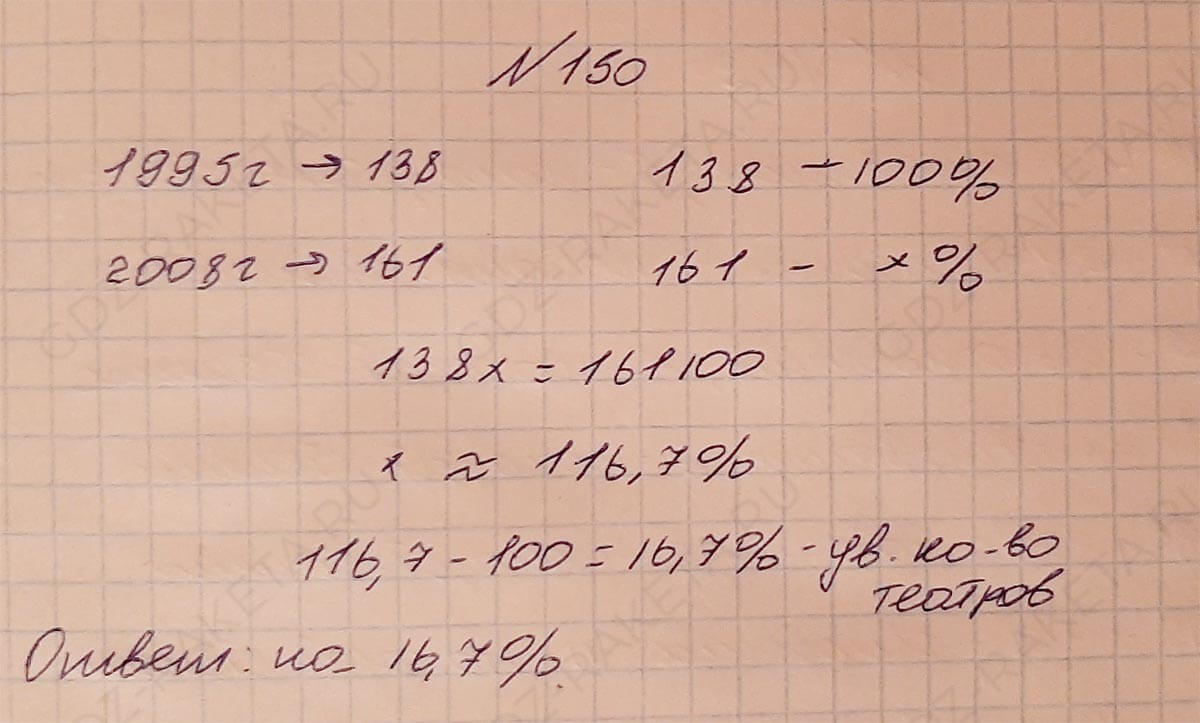 №150
1995г → 138 138 – 100%
2008г → 161 161 – x%
138x = 161 100
x ≈ 116,7%
116,7 - 100 = 16,7% - ув. кол-во
театров
Ответ: на 16,7%
GDZ-RAKETA.RU